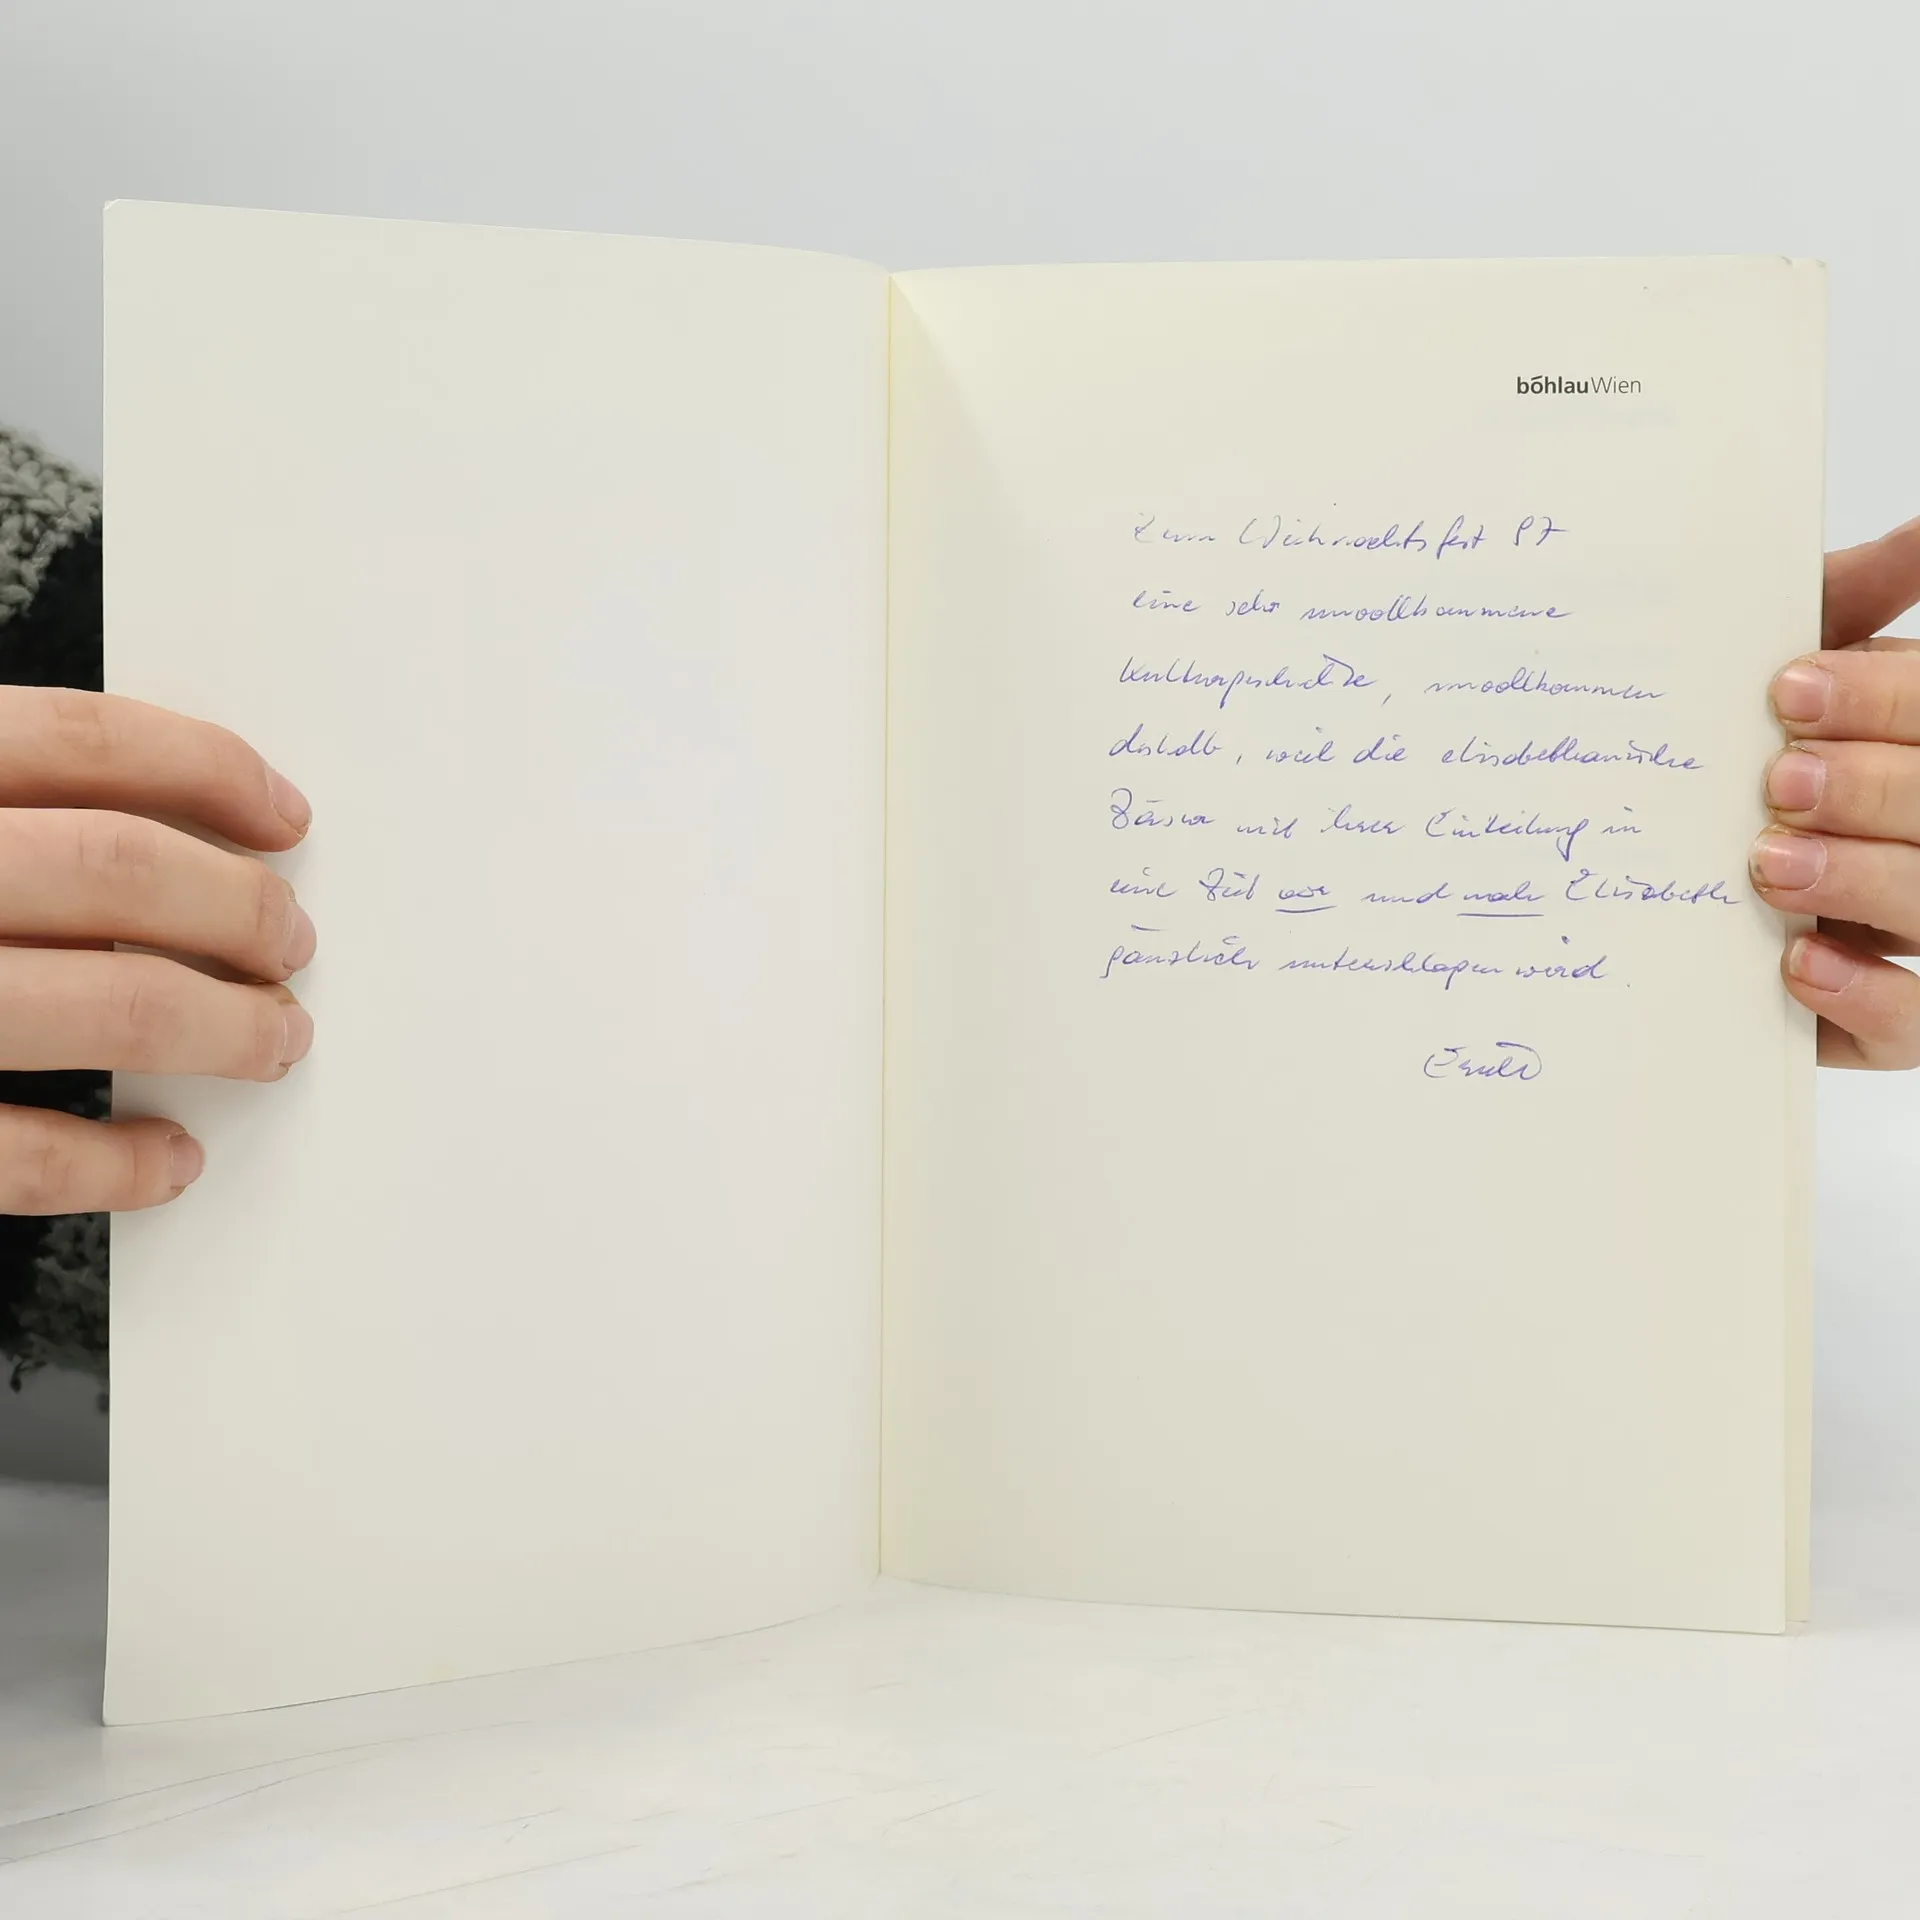 böhlauWien
Zum Weihnachtsfest 97
eine sehr unvollkommene
Kulturgeschichte, unvollkommen
deshalb, weil die elisabethanische
Zäsur mit ihrer Einteilung in
eine Zeit vor und nach Elisabeth
gänzlich unterschlagen wird.